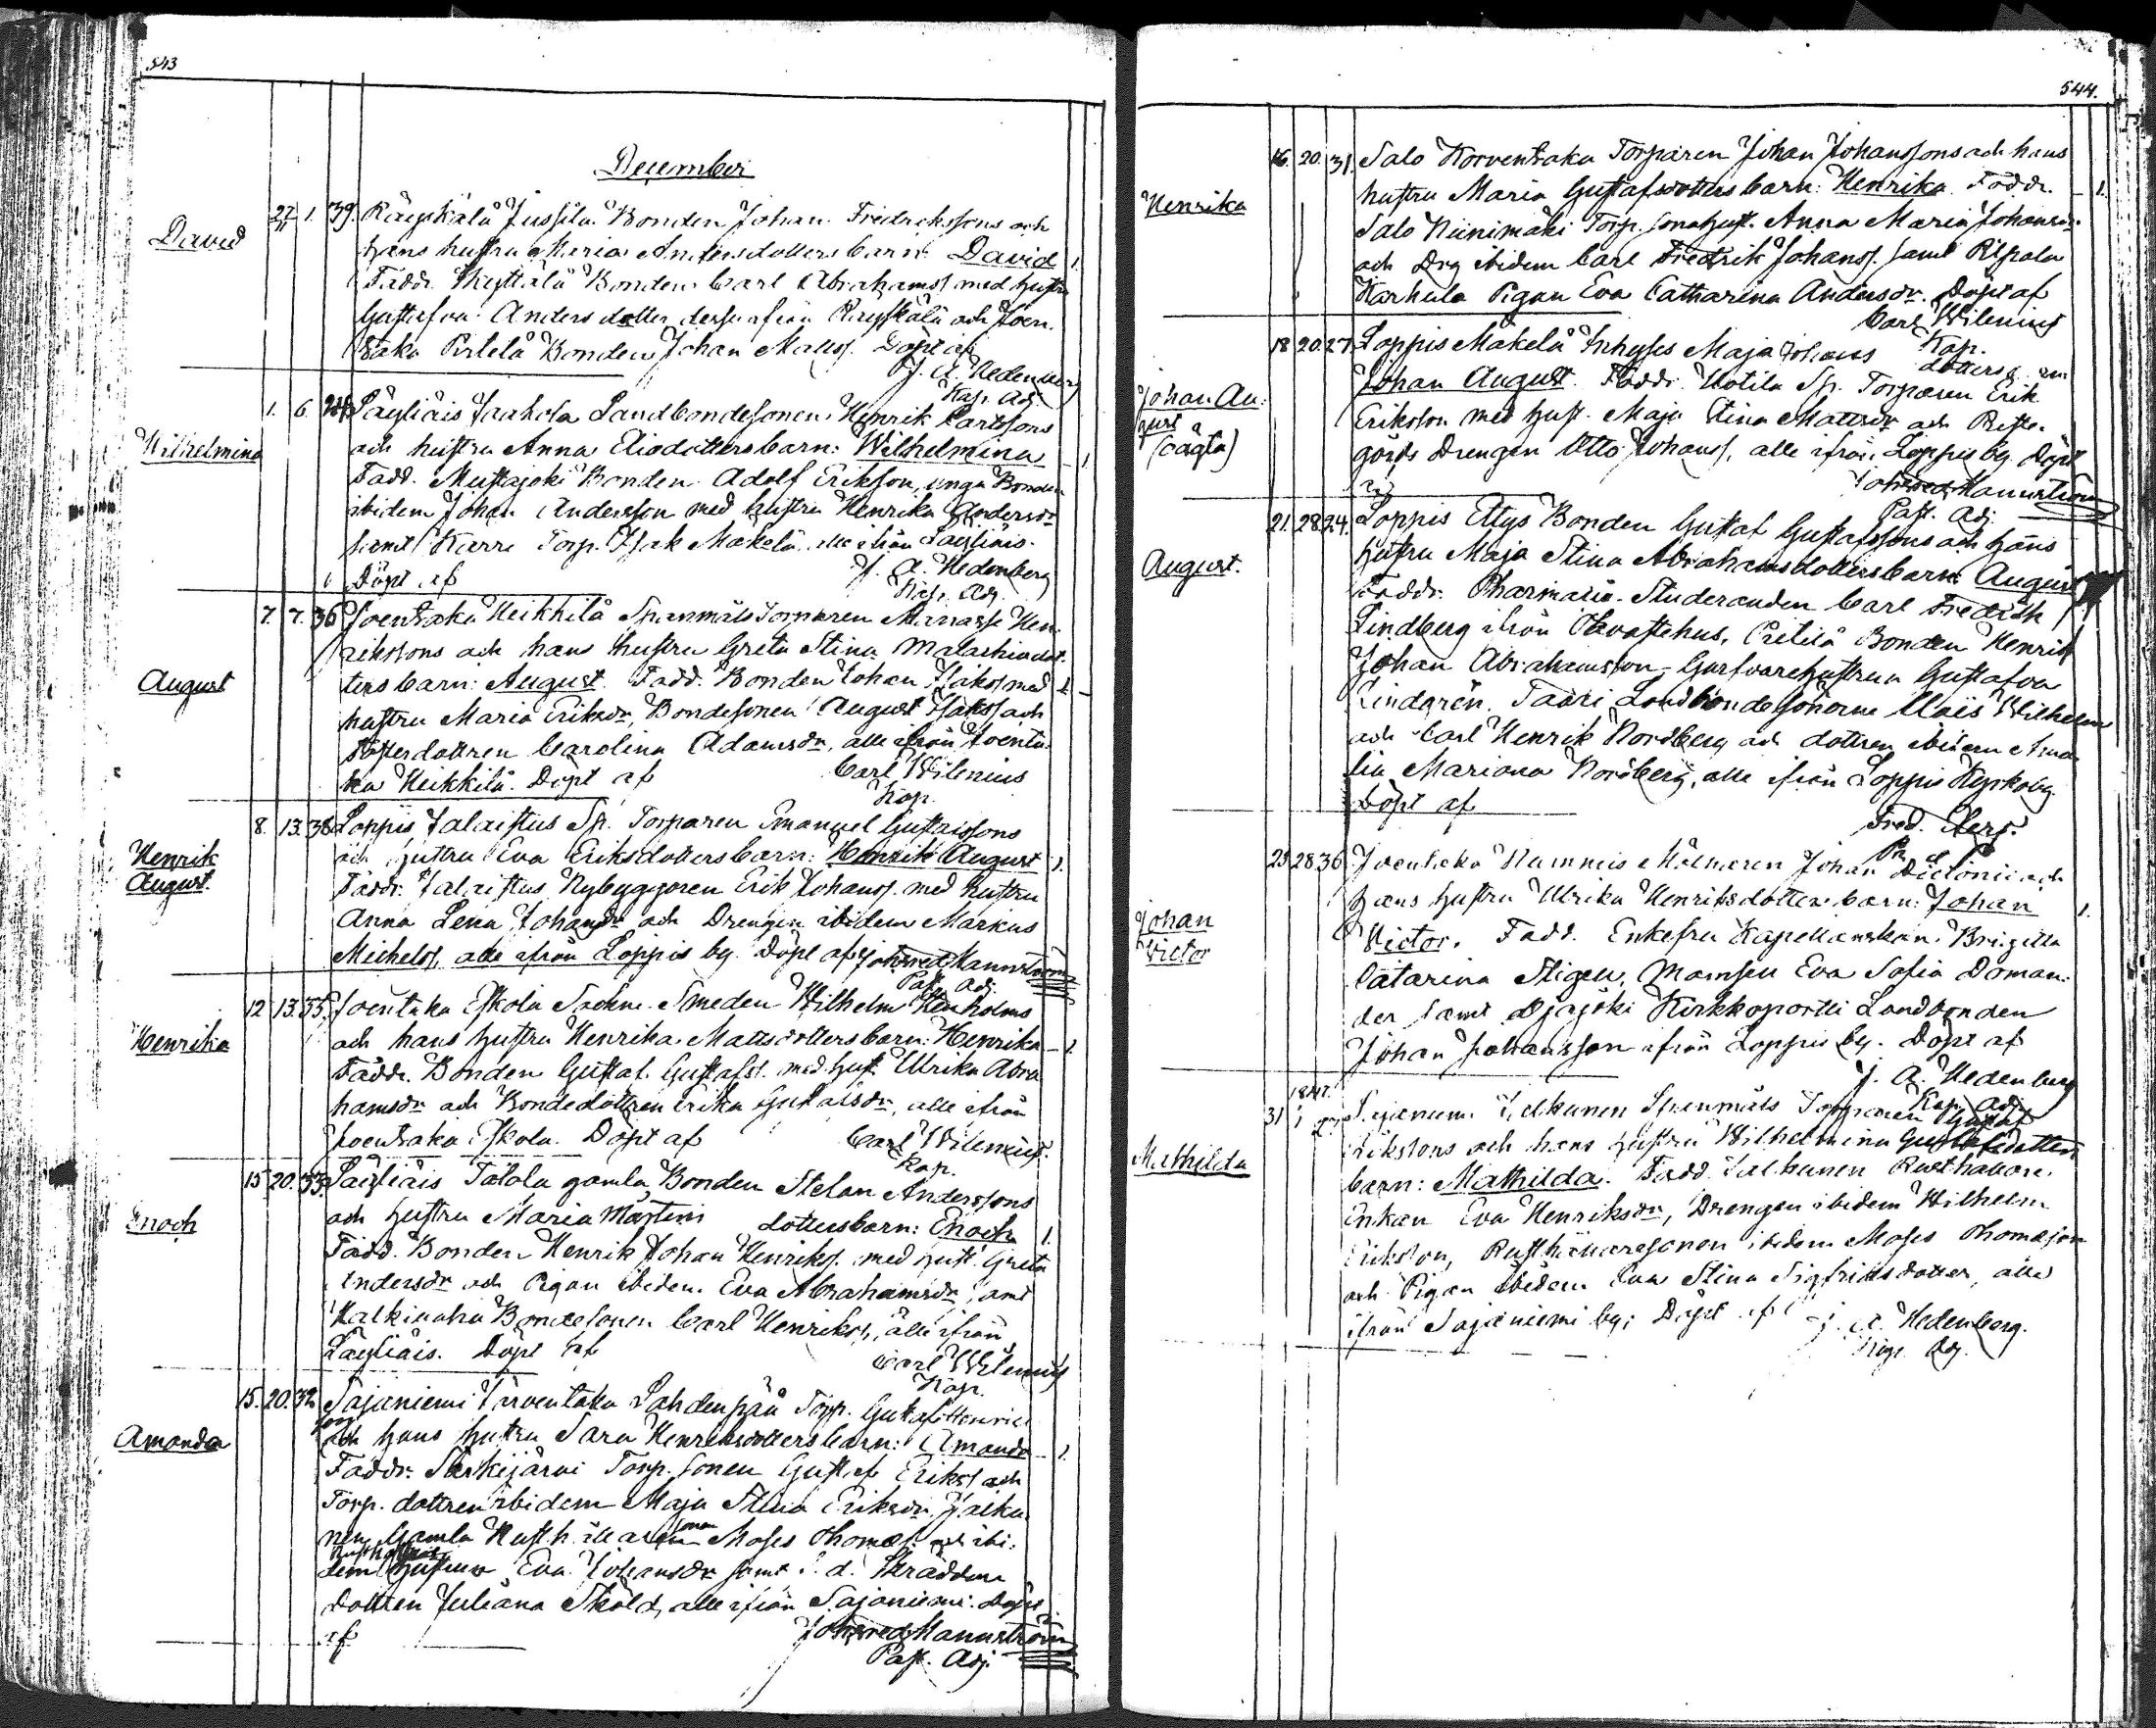 543
December
David
27/11 1. 39. Räyskälä Jussila Bonden Johan Fredrikssons och
hans hustru Maria Andersdotters barn: David 1.
Fadd. Kyttälä Bonden Carl Abrahamss. med hustru
Gustafva Andersdotter, dessa ifrån Räyskälä och Joen-
taka Pertelä Bonden Johan Matss. Döpt af
J. A. Hedenberg
Kap. Adj.
Wilhelmina
1. 6. Läyliäis Jaakola Landbondesonen Henrik Carlssons
och hustru Anna Eliedotters barn: Wilhelmina 1
Fadd. Mustajoki Bonden Adolf Erikson, unga Bonden
ibidem Johan Andersson med hustru Henrika Andersdr
samt Karra Torp. Isak Mäkelä, alla ifrån Läyliäis.
Döpt af J. A. Hedenberg
Kap. Adj.
August
7. 7. 36 Joentaka Heikkilä Spanmåls Torparen Manasse Hen-
rikssons och hans hustru Greta Stina Malachiædot-
ters barn: August. Fadd. Bonden Johan Isakss. med 1
hustru Maria Eriksdr, Bondesonen August Isakss. och
dottren Carolina Adamsdr, alle ifrån Joenta-
ka Heikkilä. Döpt af Carl Wilenius
Kap.
Henrik
August.
8. 13. 38 Loppis Jalaistus Sp. Torparen Emanuel Gustafssons
och hustru Eva Eriksdotters barn: Henrik August 1.
Faddr. Jalaistus Nybyggaren Erik Johanss. med hustru
Anna Lena Johansdr och Drengen ibidem Markus
Michelss, alle ifrån Loppis by. Döpt af Joh Fred Mannström
Past. Adj.
Henrika
12 13. 35. Joentaka Eskola Sockne Smeden Wilhelm
och hans hustru Henrika Matsdotters barn: Henrika 1.
Faddr. Bonden Gustaf Gustafss. med hust. Ulrika Abra-
hamsdr och Bondedottren Erika Gustafsdr, alle ifrån
Joentaka Eskola. Döpt af Carl Wilenius.
Kap.
Enoch
15 20. 33. Läyliäis Talola gamla Bonden Stefan Anderssons
och hustru Maria Mårtens dotters barn: Enoch 1.
Fadd. Bonden Henrik Johan Henrikss. med hust. Greta
Andersdr och Pigan ibidem Eva Abrahamsdr, samt
Bondesonen Carl Henrikss, alle ifrån
Läyliäis. Döpt af Carl Wilenius
Kap.
Amanda
15. 20. 32. Sajaniemi Terventaka Lahdenpää Torp. Gustaf Henrics
sons
och hans hustru Sara Henriksdotters barn: Amanda 1.
Faddr. Särkijärvi Torp. sonen Gustaf Erikss och
Torp. dottren ibidem Maja Stina Eriksdr, Jalka-
nen gamla Rusthållaren Moses Thomæss. och ibi-
dem hustrun Eva Johansdr samt Skräddare
Dottren Juliana Sköld, alle ifrån Sajaniemi. Döpt
af Joh Fred Mannström
Past. Adj.
544.
Henrika
16. 20. 31. Salo Korventaka Torparen Johan Johanssons och hans
hustru Maria Gustafsdotters barn: Henrika Faddr. 1.
Salo Niinimäki Torp. sons hust. Anna Maria Johansdr
och Drg ibidem Carl Fredrik Johanss. samt Pilpala
Karhula Pigan Eva Catharina Andersdr. Döpt af
Carl Wilenius
Kap.
Johan Au-
gust
(oägta)
18 20. 27. Loppis Mäkelä Inhyses Maja Johans dotters
Johan August. Faddr. Uotila Sp. Torparen Erik
Erikson med hust. Maja Stina Mattsdr och
gårds Drengen Otto Johanss, alle ifrån Loppis by. Döpt
af Joh Fred Mannström
Past. Adj.
August.
21. 28. 24. Loppis Ettys Bonden Gustaf Gustafssons och hans
hustru Maja Stina Abrahamsdotters barn: August
Faddr. Pharmacie Studeranden Carl Fredrik
Lindberg ifrån Tavastehus, Pietilä Bonden Henrik
Johan Abrahamsson, Garfvarehustrun Gustafva
Lindgrén. Landbondesönerne Claës Wilhelm
och Carl Henrik Nordberg och dottren ibidem Ama-
lia Mariana Nordberg, alle ifrån Loppis Kyrkoby.
Döpt af
Fred. Berg.
Johan
Victor
25 28 36. Joentaka Hunnais Johan och
hans hustru Ulrika Henriksdotters barn: Johan 1.
Victor. Fadd. Enkefru Kapellanskan Brigitta
Catarina Stigell, Mamsell Eva Sofia Doman-
der samt Ojajoki Kirkkoportti Landbonden
Johan Johansson ifrån Loppis by. Döpt af
J. A. Hedenberg
Kap. Adj.
Mathilda
1847.
31 1 Sajaniemi Jalkanen Spanmåls Torparen Gustaf
Erikssons och hans hustru Wilhelmina dotters
barn: Mathilda. Fadd. Jalkanen Rusthållare
Enkan Eva Henriksdr, Drengen ibidem Wilhelm
Erikson, Rusthållaresonen ibidem Moses Thomasson
och Pigan ibidem Eva Stina Sigfridsdotter, alla
ifrån Sajaniemi by; Döpt af J. A. Hedenberg.
Kap. Adj.